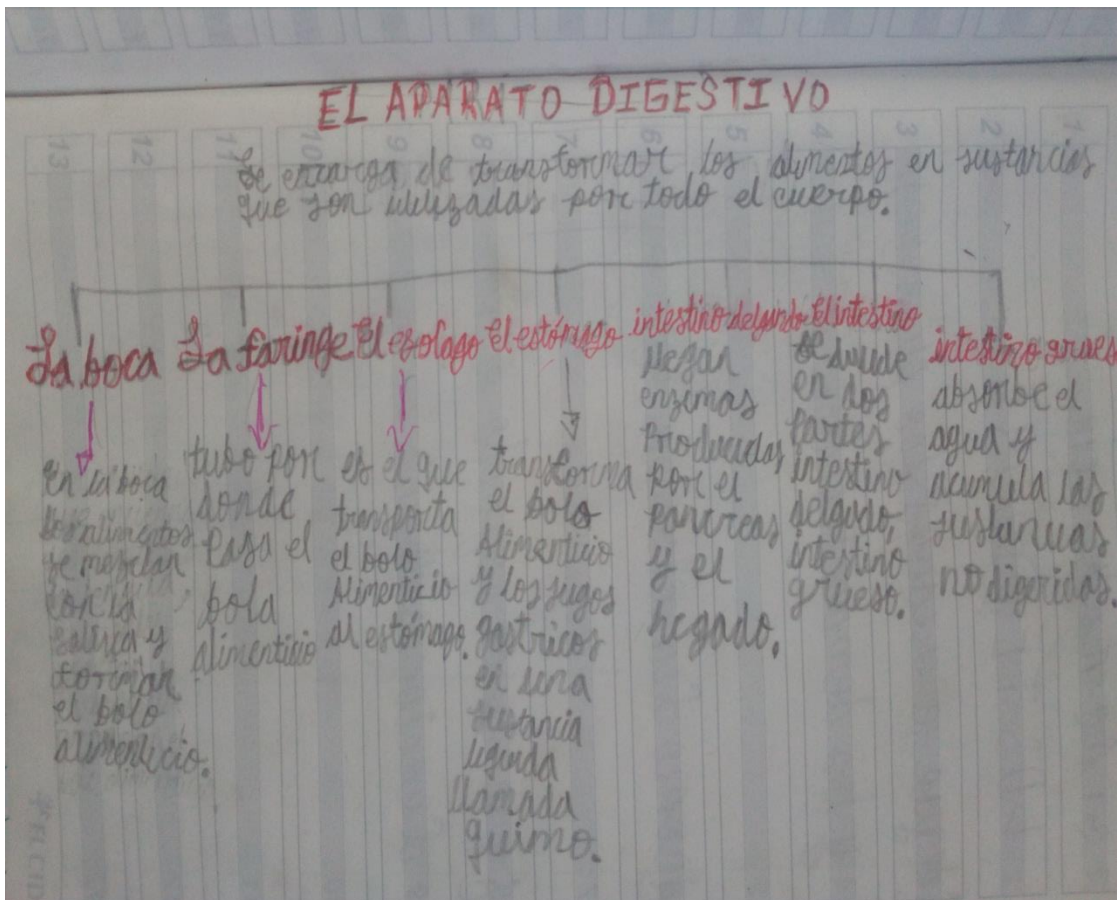 EL APARATO DIGESTIVO
13 12 11 10 9 8 7 6 5 4 3 2 1
Se encarga de transformar los alimentos en sustancias
que son utilizadas por todo el cuerpo.
La boca
En la boca
los alimentos
se mezclan
con la
saliva y
forman
el bolo
alimenticio.
La faringe
tubo por
donde
pasa el
bola
alimentisio
El esofago
es el que
transporta
el bolo
Alimenticio
al estómago.
El estómago
transforma
el bolo
Alimenticio
y los jugos
gastricos
en una
sustancia
liquida
llamada
quimo.
intestino delgado
llegan
enzimas
Producidas
por el
pancreas
y el
hegado.
El intestino
se divide
en dos
Partes
intestino
delgado,
intestino
grueso.
intestino grues
absorbe el
agua y
acumula las
sustancias
no digeridas.